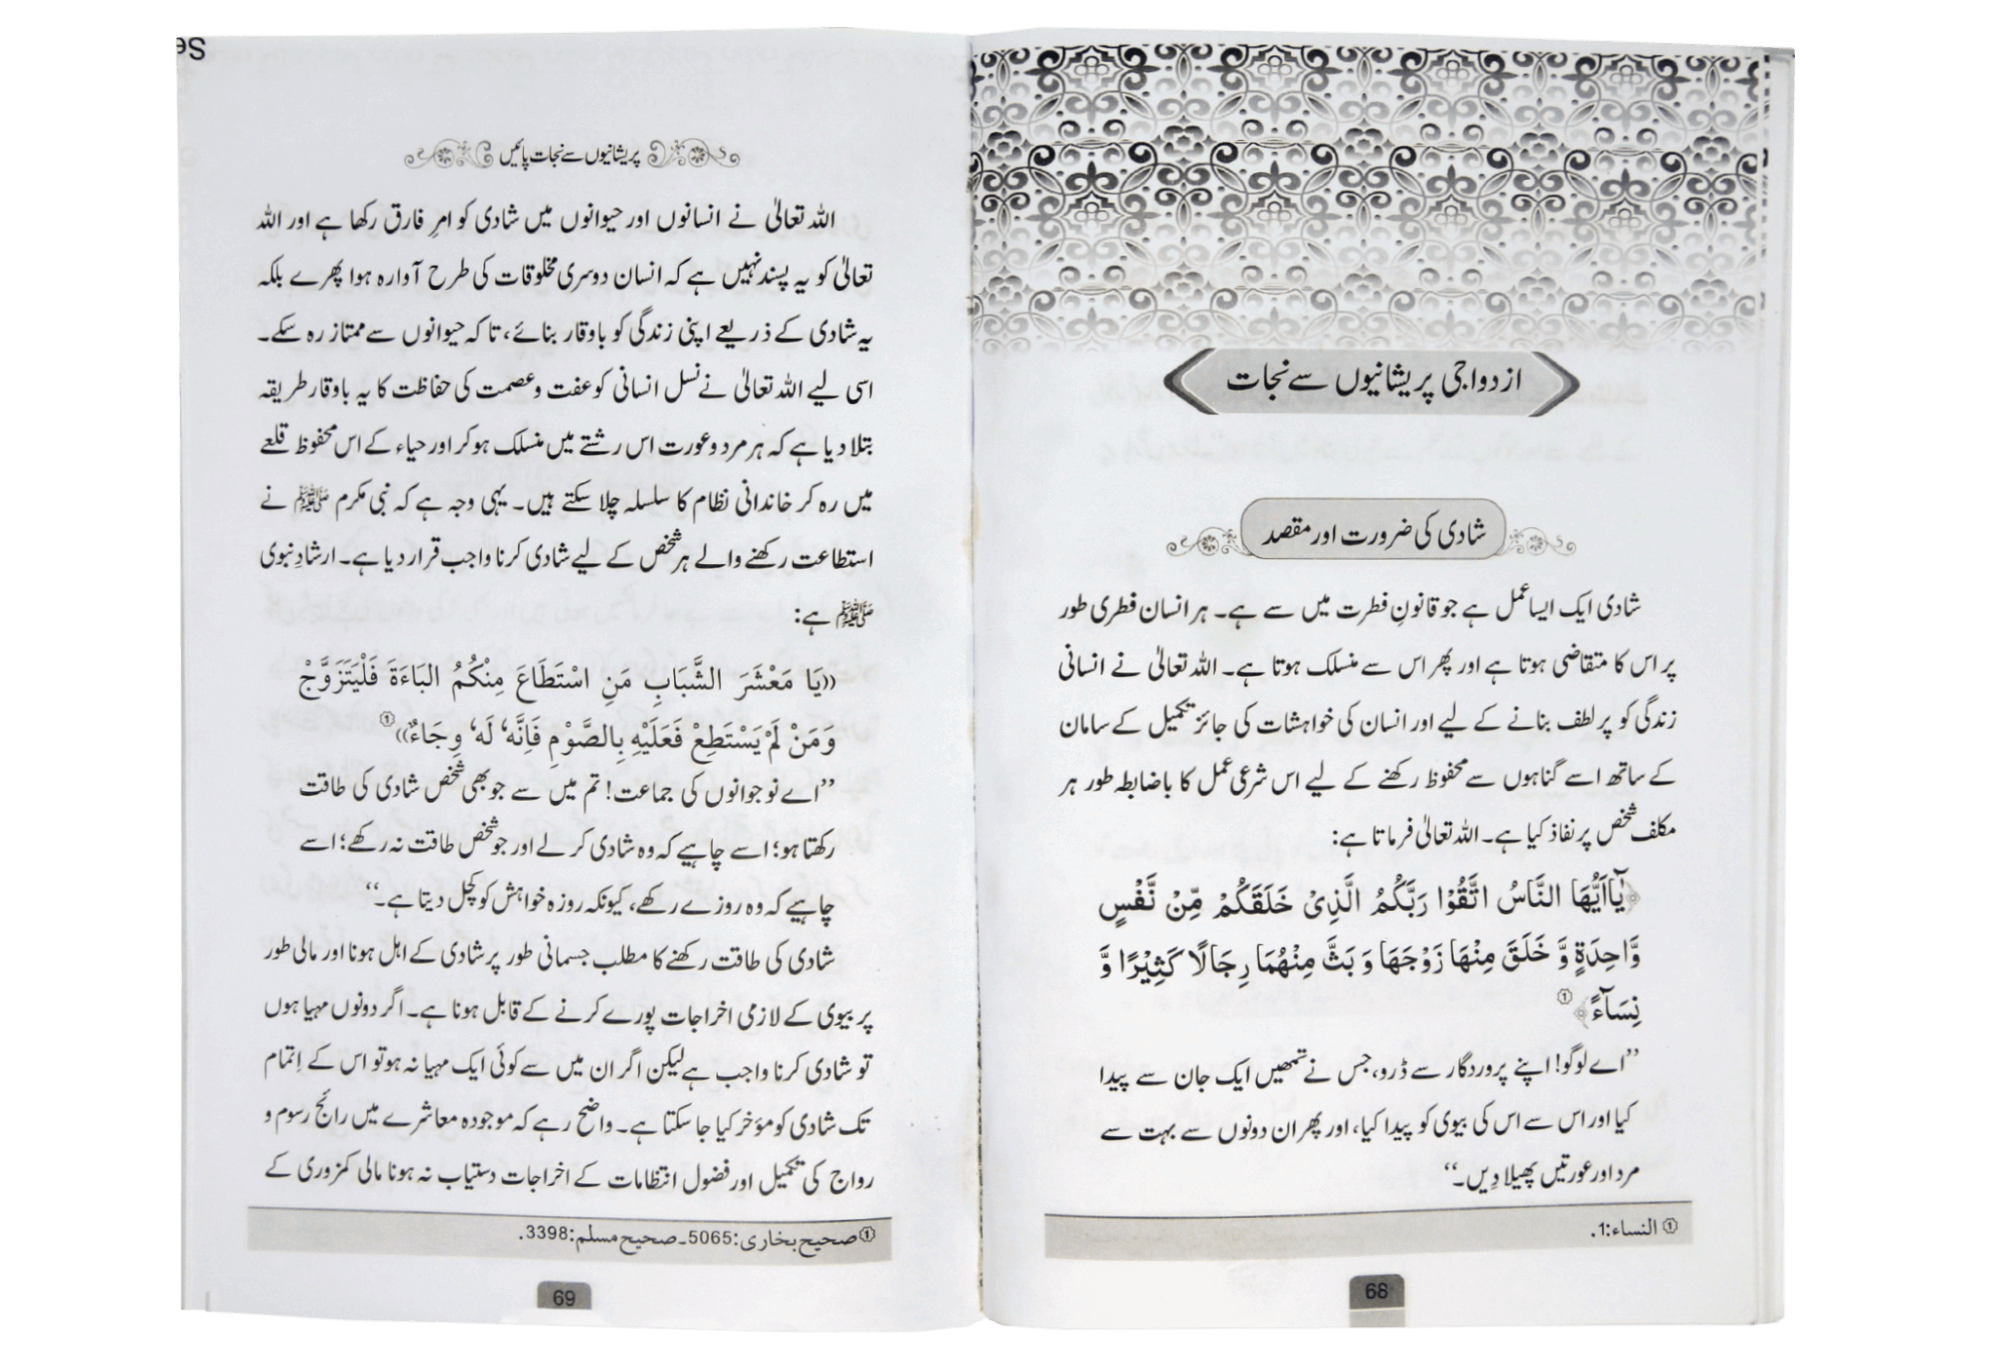 ازدواجی پریشانیوں سے نجات
شادی کی ضرورت اور مقصد
شادی ایک ایسا عمل ہے جو قانونِ فطرت میں سے ہے۔ ہر انسان فطری طور
پر اس کا متقاضی ہوتا ہے اور پھر اس سے منسلک ہوتا ہے۔ اللہ تعالیٰ نے انسانی
زندگی کو پر لطف بنانے کے لیے اور انسان کی خواہشات کی جائز تکمیل کے سامان
کے ساتھ اسے گناہوں سے محفوظ رکھنے کے لیے اس شرعی عمل کا باضابطہ طور ہر
مکلف شخص پر نفاذ کیا ہے۔ اللہ تعالیٰ فرماتا ہے:
﴿يٰٓاَيُّهَا النَّاسُ اتَّقُوْا رَبَّكُمُ الَّذِىْ خَلَقَكُمْ مِّنْ نَّفْسٍ
وَّاحِدَةٍ وَّ خَلَقَ مِنْهَا زَوْجَهَا وَ بَثَّ مِنْهُمَا رِجَالًا كَثِيْرًا وَّ
نِسَآءً﴾ ①
’’اے لوگو! اپنے پروردگار سے ڈرو، جس نے تمھیں ایک جان سے پیدا
کیا اور اس سے اس کی بیوی کو پیدا کیا، اور پھر ان دونوں سے بہت سے
مرد اور عورتیں پھیلا دِیں۔‘‘
① النساء:1.
68
Se
پریشانیوں سے نجات پائیں
اللہ تعالیٰ نے انسانوں اور حیوانوں میں شادی کو امرِ فارق رکھا ہے اور اللہ
تعالیٰ کو یہ پسند نہیں ہے کہ انسان دوسری مخلوقات کی طرح آوارہ ہوا پھرے بلکہ
یہ شادی کے ذریعے اپنی زندگی کو باوقار بنائے، تاکہ حیوانوں سے ممتاز رہ سکے۔
اسی لیے اللہ تعالیٰ نے نسل انسانی کو عفت و عصمت کی حفاظت کا یہ باوقار طریقہ
بتلا دیا ہے کہ ہر مرد و عورت اس رشتے میں منسلک ہو کر اور حیاء کے اس محفوظ قلعے
میں رہ کر خاندانی نظام کا سلسلہ چلا سکتے ہیں۔ یہی وجہ ہے کہ نبی مکرم ﷺ نے
استطاعت رکھنے والے ہر شخص کے لیے شادی کرنا واجب قرار دیا ہے۔ ارشادِ نبوی
ﷺ ہے:
((يَا مَعْشَرَ الشَّبَابِ مَنِ اسْتَطَاعَ مِنْكُمُ البَاءَةَ فَلْيَتَزَوَّجْ
وَمَنْ لَمْ يَسْتَطِعْ فَعَلَيْهِ بِالصَّوْمِ فَإِنَّهٗ لَهٗ وِجَاءٌ)) ①
’’اے نوجوانوں کی جماعت! تم میں سے جو بھی شخص شادی کی طاقت
رکھتا ہو؛ اسے چاہیے کہ وہ شادی کر لے اور جو شخص طاقت نہ رکھے؛ اسے
چاہیے کہ وہ روزے رکھے، کیونکہ روزہ خواہش کو کچل دیتا ہے۔‘‘
شادی کی طاقت رکھنے کا مطلب جسمانی طور پر شادی کے اہل ہونا اور مالی طور
پر بیوی کے لازمی اخراجات پورے کرنے کے قابل ہونا ہے۔ اگر دونوں مہیا ہوں
تو شادی کرنا واجب ہے لیکن اگر ان میں سے کوئی ایک مہیا نہ ہو تو اس کے اِتمام
تک شادی کو مؤخر کیا جا سکتا ہے۔ واضح رہے کہ موجودہ معاشرے میں رائج رسوم و
رواج کی تکمیل اور فضول انتظامات کے اخراجات دستیاب نہ ہونا مالی کمزوری کے
① صحیح بخاری:5065۔ صحیح مسلم:3398.
69